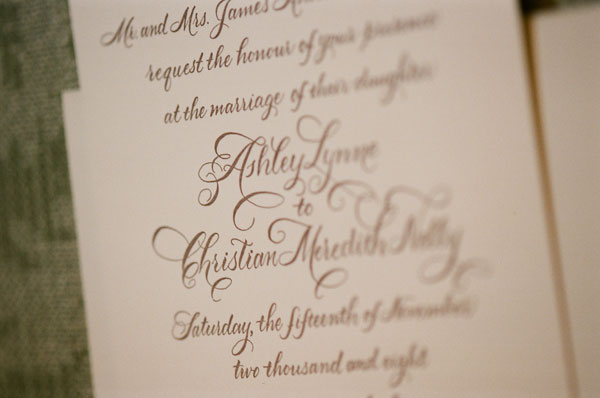 Mr. and Mrs. James
request the honour of your presence
at the marriage of their daughter
Ashley Lynne
to
Christian Meredith Nelly
Saturday, the fifteenth of November
two thousand and eight